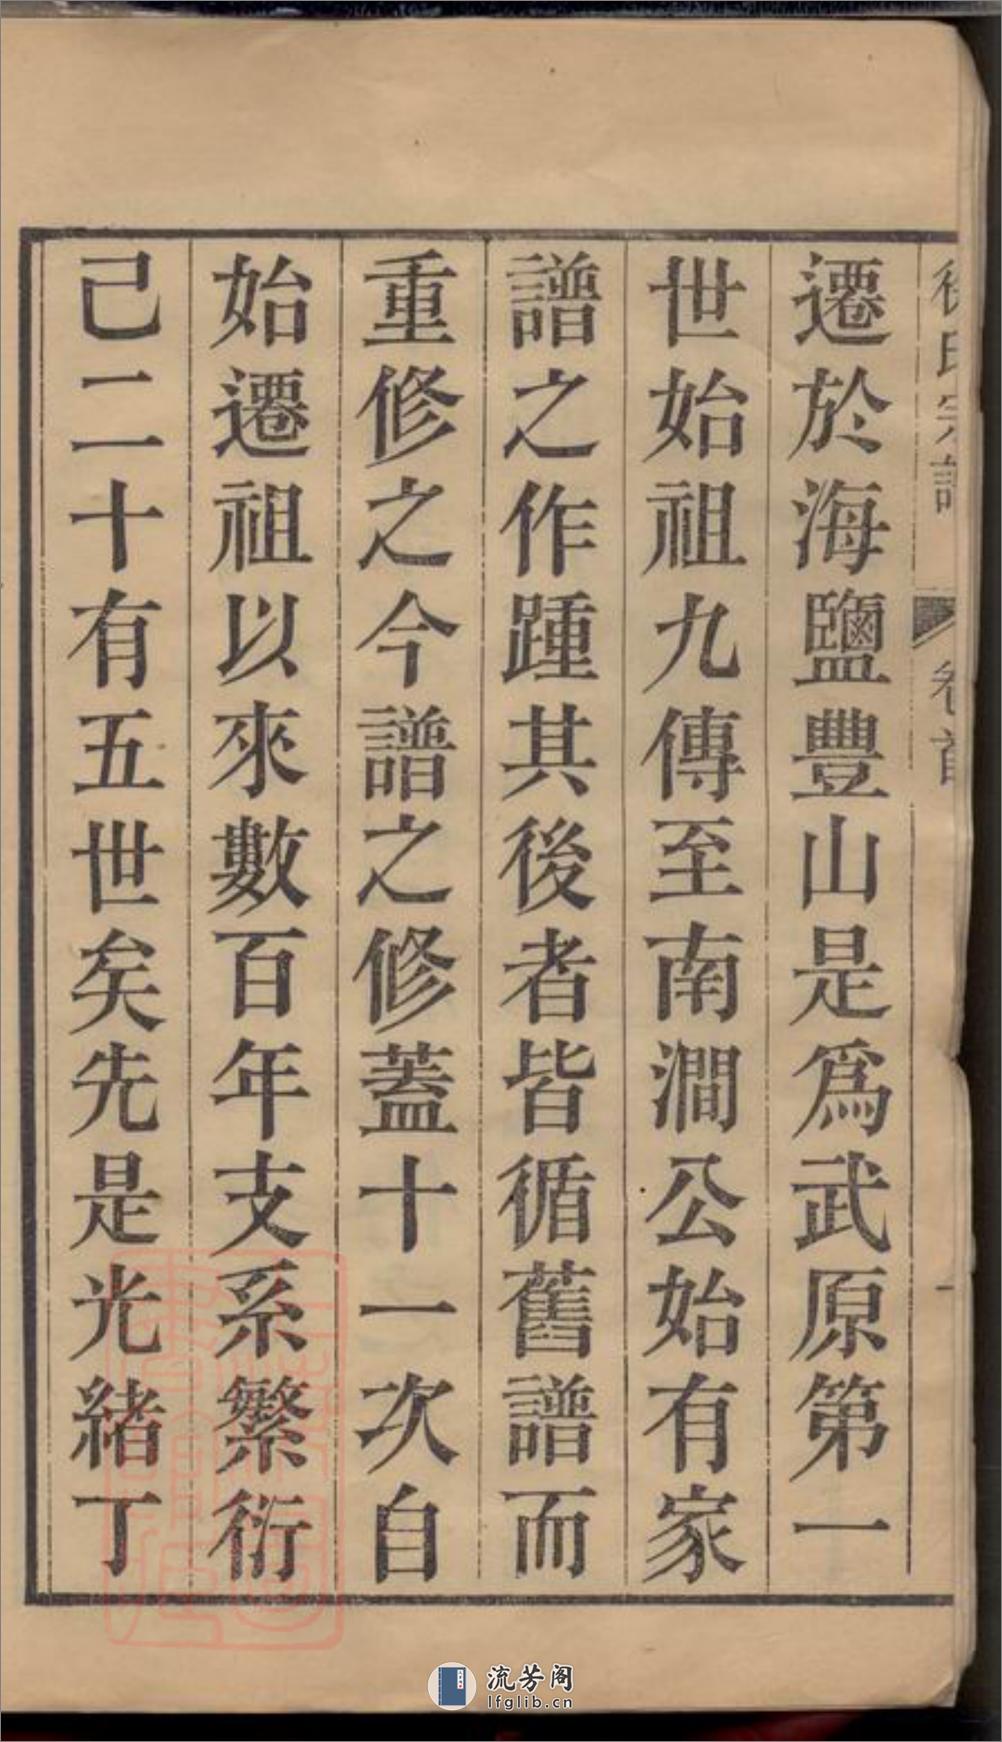 遷於海鹽豐山是爲武原第一
世始祖九傳至南澗公始有家
譜之作踵其後者皆循舊譜而
重修之今譜之修蓋十一次自
始遷祖以來數百年支系繁衍
己二十有五世矣先是光緒丁
流芳阁
lfglib.cn